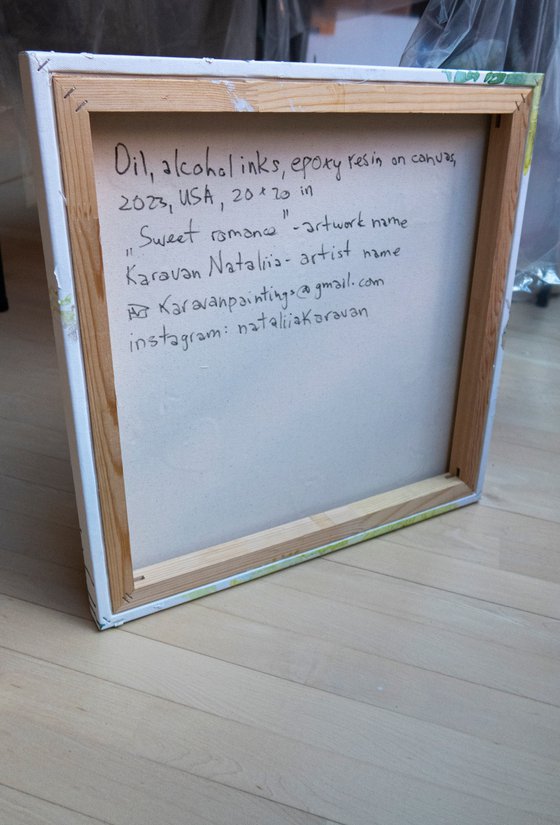 Oil, alcohol inks, epoxy resin on canvas,
2023, USA, 20 x 20 in
„Sweet romance" - artwork name
Karavan Nataliia - artist name
Karavanpaintings@gmail.com
instagram: nataliiaKaravan